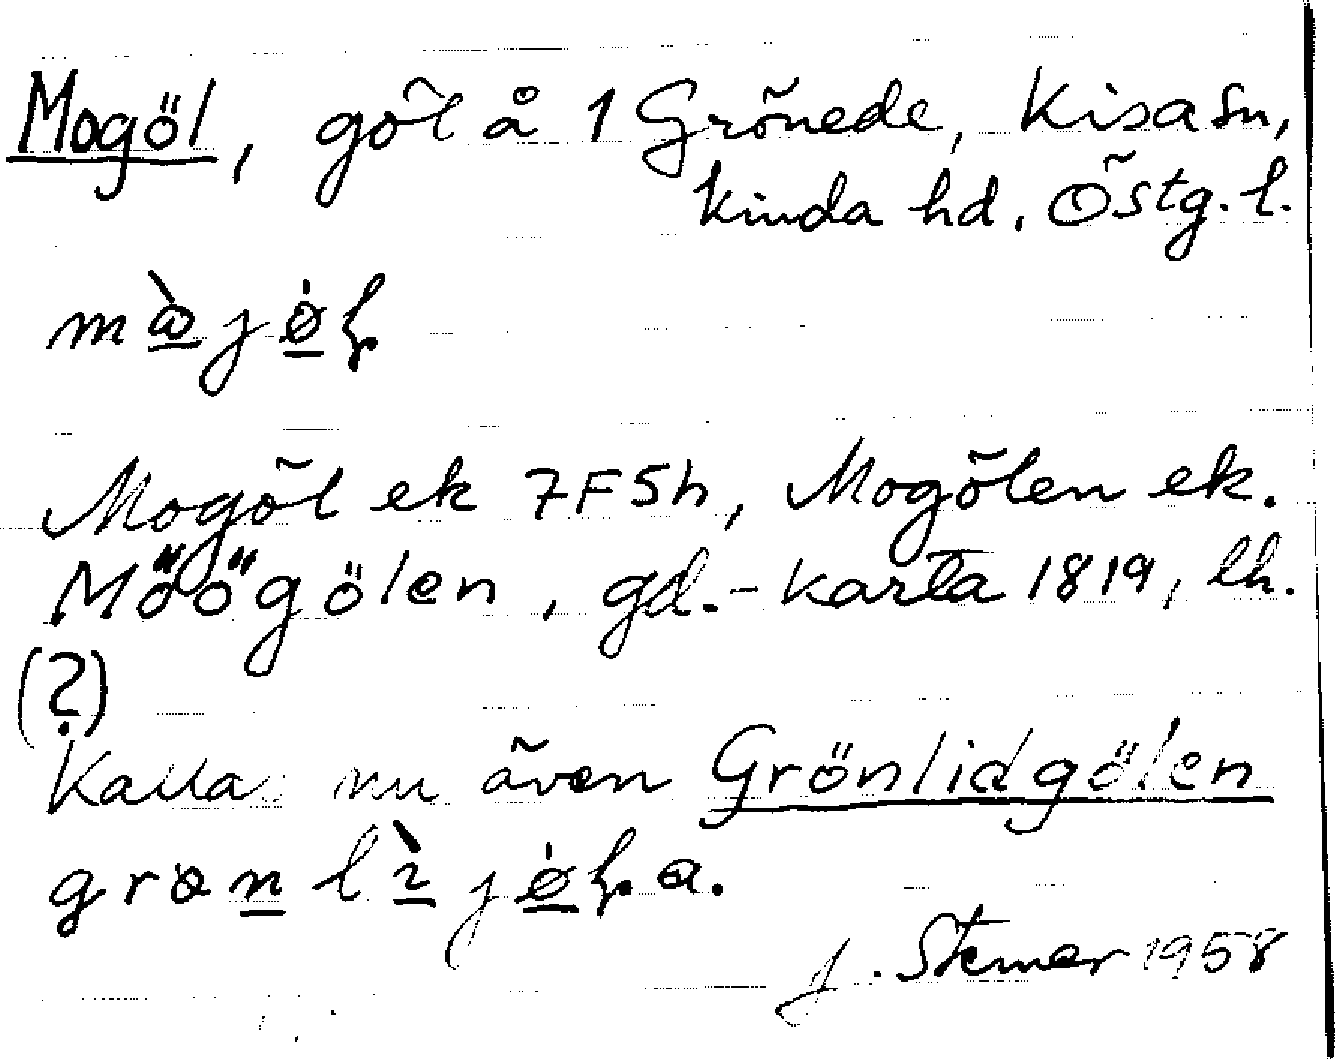 Mogöl, göl å 1 Grönede, Kisa sn,
Kinda hd, Östg. l.
Mogöl ek 7F5h, Mogölen ek.
Möögölen, gd.-karta 1819, lh.
(?)
Kallas nu även Grönlidgölen
J. Stemer 1958